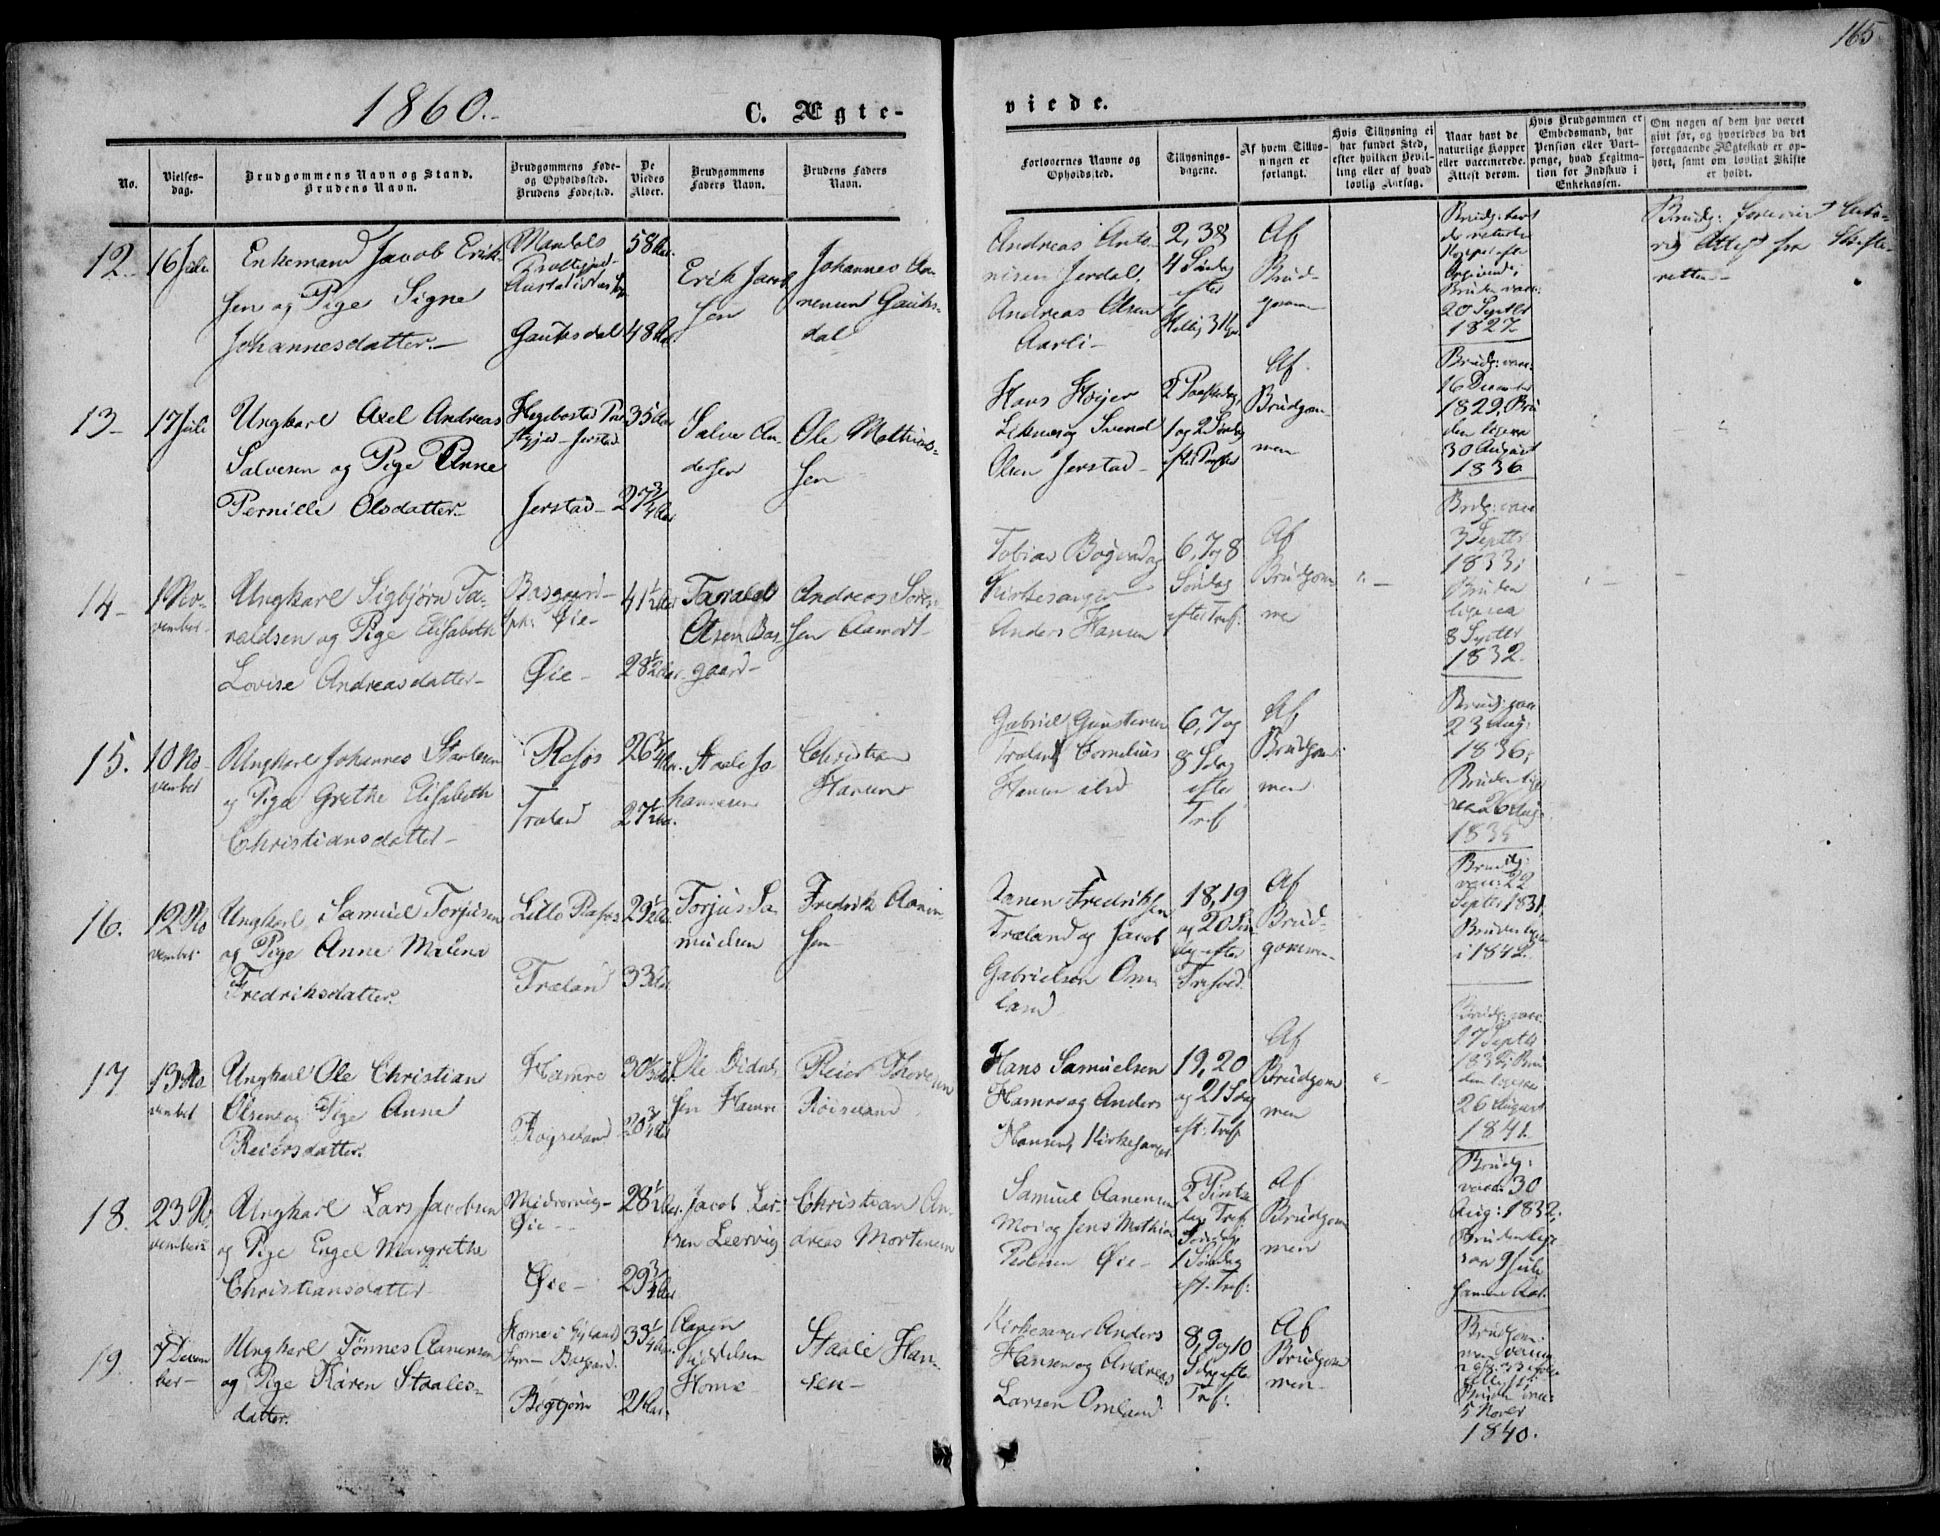 165
1860.
C. Ægte-
viede.
No.
Vielses-
dag.
Brudgommens Navn og Stand.
Brudens Navn.
Brudgommens Føde-
og Opholdssted.
Brudens Fødested.
De
Viedes
Alder.
Brudgommens
Faders Navn.
Brudens Faders
Navn.
Forlovernes Navne og
Opholdssted.
Tillysnings-
dagene.
Af hvem Tillys-
ningen er
forlangt.
Hvis Tillysning ei
har fundet Sted,
efter hvilken Bevil-
ling eller af hvad
lovlig Aarsag.
Naar havt de
naturlige Kopper
eller vaccinerede.
Attest derom.
Hvis Brudgommen er
Embedsmand, har
Pension eller Vart-
penge, hvad Legitima-
tion for Indskud i
Enkekassen.
Om nogen af dem har været
gift før, og hvorledes da det
foregaaende Ægteskab er op-
hørt, samt om lovligt Skifte
er holdt.
12. 16 Juli
Enkemand Jacob Erik-
sen og Pige Signe
Johannesdatter
Mandals
Gauksdal
58 Aar
48 Aar
Erik Jacob
sen
Johannes Aa-
nensen Gauks-
dal
Andreas Anto-
nisen Jerdal,
Andreas Olsen
Aarli
2, 3 og
4 Søndag
efter
Af
Brud-
gom
Brud: havt
de naturlige
Kopper efter
Bruden vacc:
20 Septbr
1827
Brudg:
Attest fra Skifte-
retten
13 17 Juli
Ungkarl Axel Andreas
Salvesen og Pige Anne
Pernille Olsdatter
Hegebostad Præ
stegjed - Jerstad
Jerstad
35 Aar
27 3/4 Aar
Salve An-
dersen
Ole Mathias-
sen
Hans Høyer
Liknes og Svend
Olsen Jerstad
2 Paaskedag
1 og 2 Søndag
efter Paaske
Af
Brudgom-
men
Brudg: vacc:
16 December
1829, Bru
den ligesa
30 August
1836
14 1 No-
vember
Ungkarl Sigbjørn Ta-
raldsen og Pige Elisabeth
Lovise Andreasdatter
Basgaard
Øie
Øie
41 1/2 Aar
28 1/2 Aar
Tarald
Olsen Bas-
gaard
Andreas Søren
sen Aamodt
Tobias Bøgvad og
Kirkesanger
Anders Hansen
6, 7 og 8
Søndag
efter Tref:
Af
Brudgom-
men
Brdg: vacc
3 Septbr
1833;
Bruden
ligesaa
8 Septbr
1832
15. 10 No-
vember
Ungkarl Johannes Staalesen
og Pige Grethe Elisabeth
Christiansdatter
Refsøs
Træland
26 3/4 Aar
27 1/2 Aar
Staale Jo-
hannesen
Christian
Hansen
Gabriel Gunstensen
Træland Cornelius
Hansen ibid
6, 7 og
8 Sdag
efter
Tref
Af
Brudgom-
men
Brudg: vacc
23 Aug:
1836,
Bruden lige
saa 26 Aug
1835
16. 12 No
vember
Ungkarl Samuel Torjusen
og Pige Anne Malena
Fredriksdatter
Lille Refsøs
Træland
29 1/2 Aar
33 Aar
Torjus Sa-
muelsen
Fredrik Aanen
sen
Aanen Fredriksen
Træland og Jacob
Gabrielsen Om-
land
18, 19
og 20 Søn
dag efter
Trefold:
Af
Brud-
gommen
Brudg:
vacc: 22
Septbr 1831,
Bruden lige
i 1842
17 13 No
vember
Ungkarl Ole Christian
Olsen og Pige Anne
Reiersdatter
Hamre
Røyseland
Ole
sen Hamre
Reier Thorsen
Røiseland
Hans Samuelsen
Hamre og Anders
Hansen, Kirkesanger
19, 20
og 21 Sdag
eft: Tref
Af
Brudgom
men
Brudg: vacc
17 Septbr
den ligesaa
26 August
1841
18. 23 No
vember
Ungkarl Lars Jacobsen
og Pige Engel Margrethe
Christiansdatter
Øie
Øie
28 1/2 Aar
29 3/4 Aar
Jacob Lar-
sen Leervig
Christian An-
dreas Mortensen
Samuel Aanensen
Moi og Jens Mathias
Pedersen Øie
2 Pintse
dag Tref:
Søndag
1 Søndag
eft: Tref:
Af
Brudgom
men
Brudg:
vacc: 30
Aug: 1832,
Bruden lige
saa 9 Juli
samme Aar.
19. 7 Decem
ber
Ungkarl Tønnes Aanensen
og Pige Karen Staales-
datter
Home i Gyland
Sogn - Basgaard
Bøgtjøn
33 1/4 Aar
21 Aar
Aanen
Home
Staale Han-
sen
Kirkesanger Anders
Hansen og Andreas
Larsen Omland
8, 9 og 10
Sdag efter
Tref:
Af
Brudgom
men
Brudgom-
men
Bruden vacc:
5 Novbr
1840.